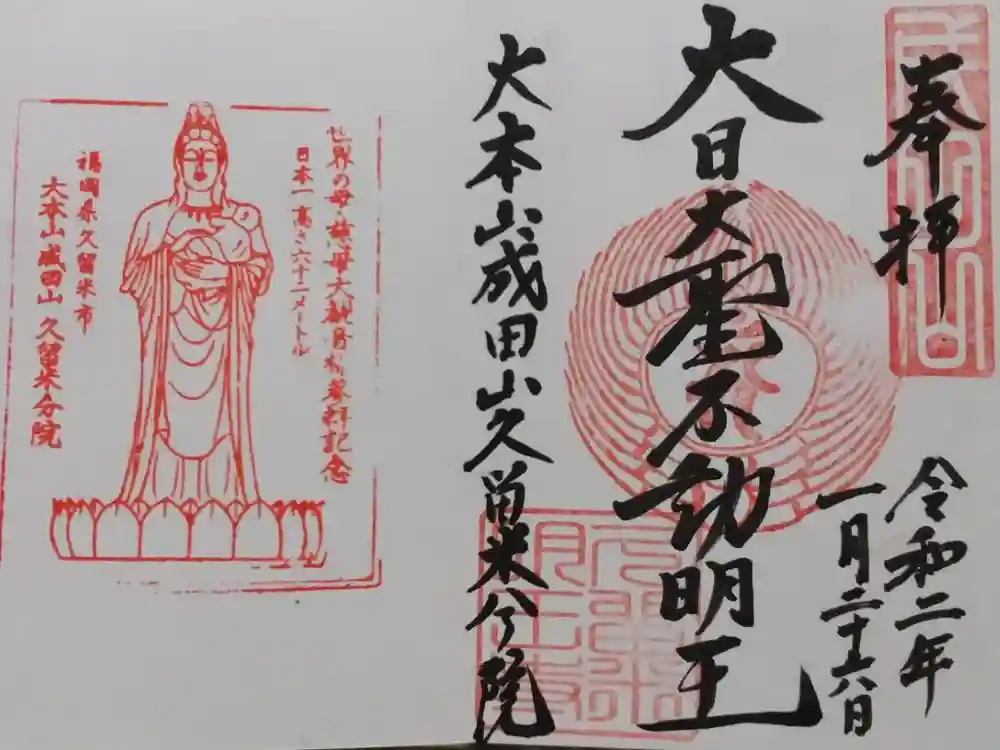 奉拝
令和二年
一月二十六日
大日大聖不動明王
大本山成田山久留米分院
成田山
世界の母・慈母大観音参拝記念
日本一高さ六十二メートル
福岡県久留米市
大本山成田山久留米分院